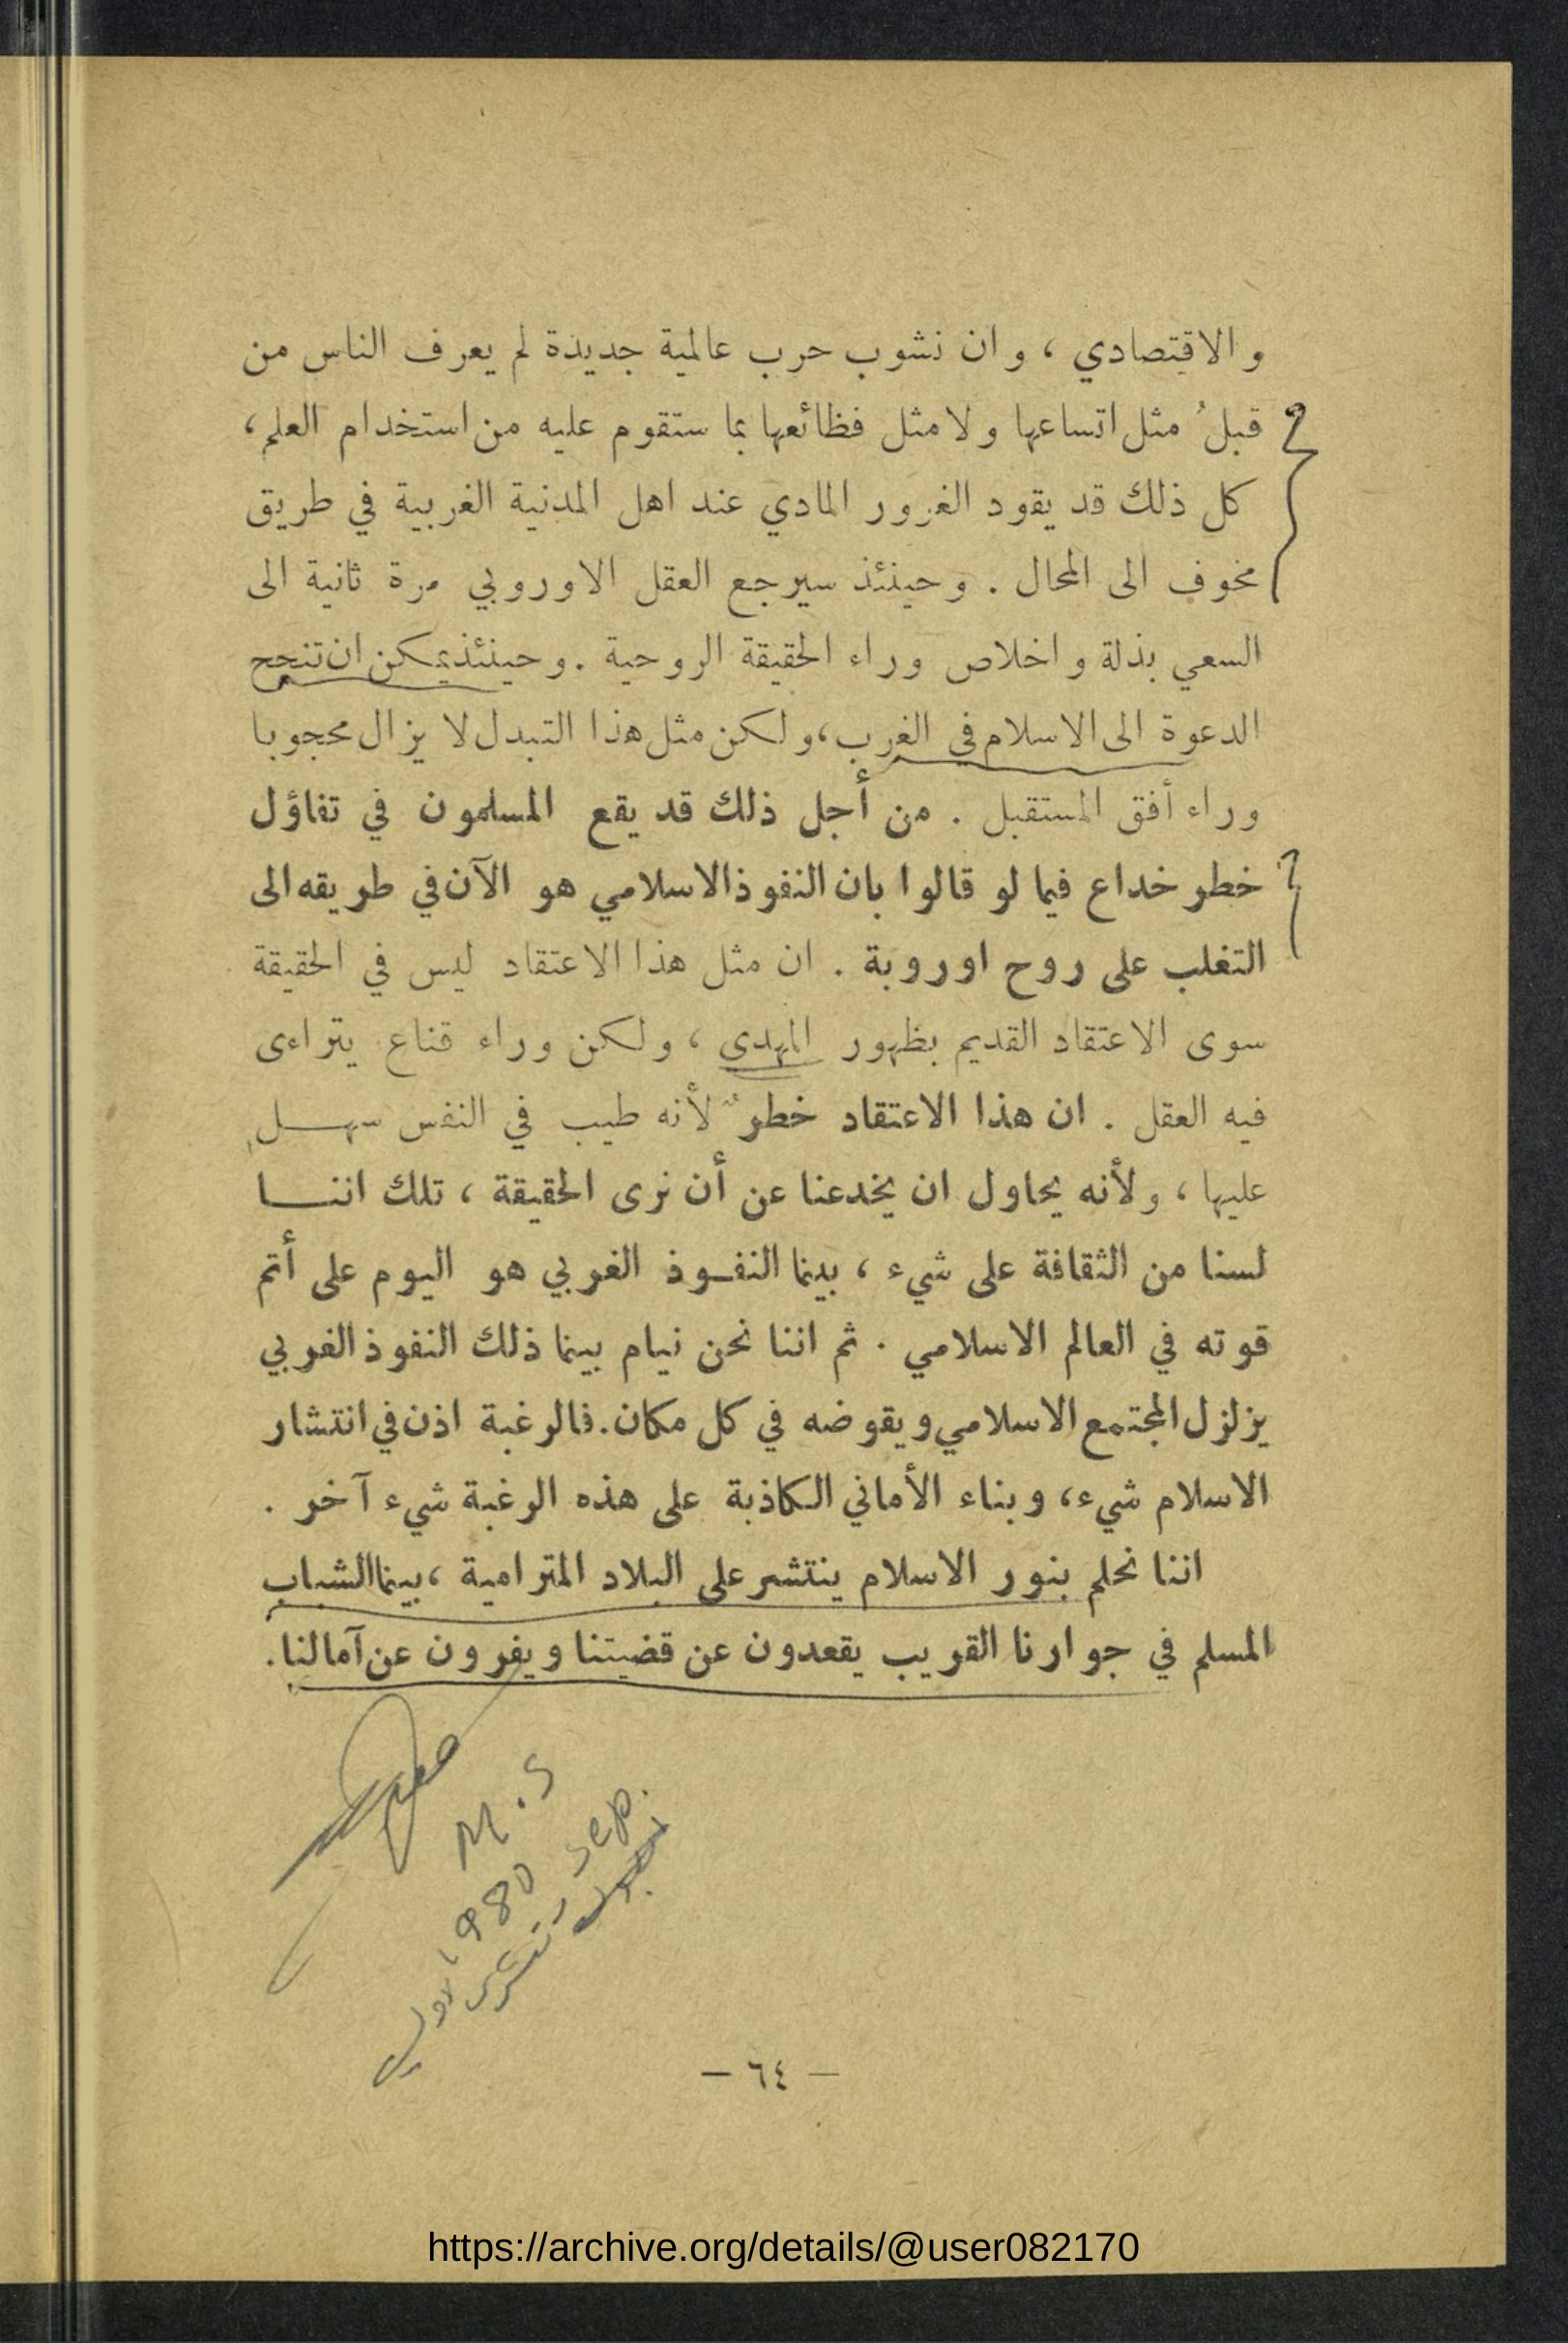 والاقتصادي ، وان نشوب حرب عالمية جديدة لم يعرف الناس من
قبلُ مثل اتساعها ولا مثل فظائعها بما ستقوم عليه من استخدام العلم ،
كل ذلك قد يقود الغرور المادي عند اهل المدنية الغربية في طريق
مخوف الى المحال . وحينئذ سيرجع العقل الاوروبي مرة ثانية الى
السعي بذلة واخلاص وراء الحقيقة الروحية . وحينئذ يمكن ان تنجح
الدعوة الى الاسلام في الغرب ، ولكن مثل هذا التبدل لا يزال محجوبا
وراء أفق المستقبل . من أجل ذلك قد يقع المسلمون في تفاؤل
خطر خداع فيما لو قالوا بان النفوذ الاسلامي هو الآن في طريقه الى
التغلب على روح اوروبة . ان مثل هذا الاعتقاد ليس في الحقيقة
سوى الاعتقاد القديم بظهور المهدى ، ولكن وراء قناع يتراءى
فيه العقل . ان هذا الاعتقاد خطرٌ لأنه طيب في النفس سهـــل
عليها ، ولأنه يحاول ان يخدعنا عن أن نرى الحقيقة ، تلك اننـــا
لسنا من الثقافة على شيء ، بينما النفـوذ الغربي هو اليوم على أتم
قوته في العالم الاسلامي . ثم اننا نحن نيام بينما ذلك النفوذ الغربي
يزلزل المجتمع الاسلامي ويقوضه في كل مكان . فالرغبة اذن في انتشار
الاسلام شيء ، وبناء الأماني الكاذبة على هذه الرغبة شيء آخر .
اننا نحلم بنور الاسلام ينتشر على البلاد المترامية ، بينما الشباب
المسلم في جوارنا القريب يقعدون عن قضيتنا ويفرون عن آمالنا .
M.S
1980 sep.
— ٦٤ —
https://archive.org/details/@user082170